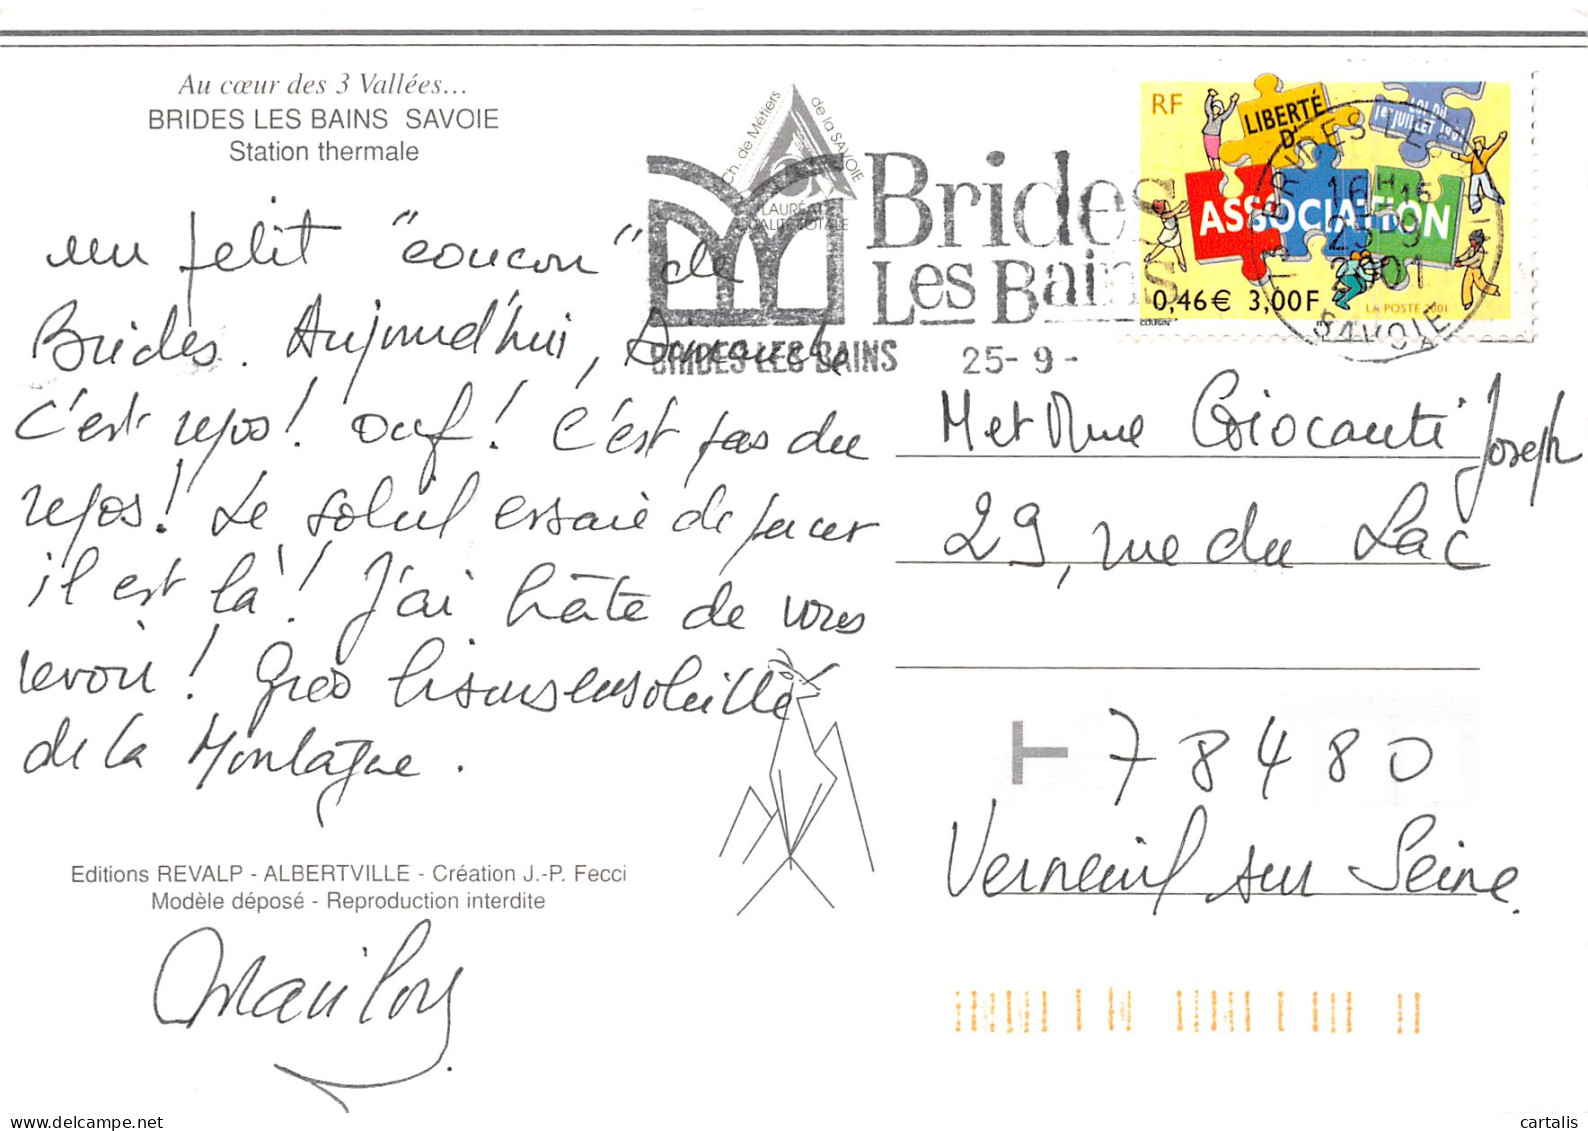 Au cœur des 3 Vallées...
BRIDES LES BAINS SAVOIE
Station thermale
un petit "coucou" de
Brides. Aujourd'hui, Dimanche
c'est repos! Ouf! C'est pas du
repos! Le soleil essaie de percer
il est là! J'ai hâte de vous
revoir! Gros bisous ensoleillés
de la Montagne.
Editions REVALP - ALBERTVILLE - Création J.-P. Fecci
Modèle déposé - Reproduction interdite
Marilou
Ch. de Métiers de la SAVOIE
LAURÉAT
QUALITÉ TOTALE
Brides
Les Bains
BRIDES LES BAINS 25-9-
RF
LIBERTÉ
D'
ASSOCIATION
LOI DU
1er JUILLET 1901
0,46 € 3,00 F
LA POSTE 2001
BRIDES LES BAINS
16 H 15
25-9
2001
SAVOIE
M et Mme Criocanti Joseph
29, rue du Lac
T 78480
Verneuil sur Seine.
delcampe.net
cartalis